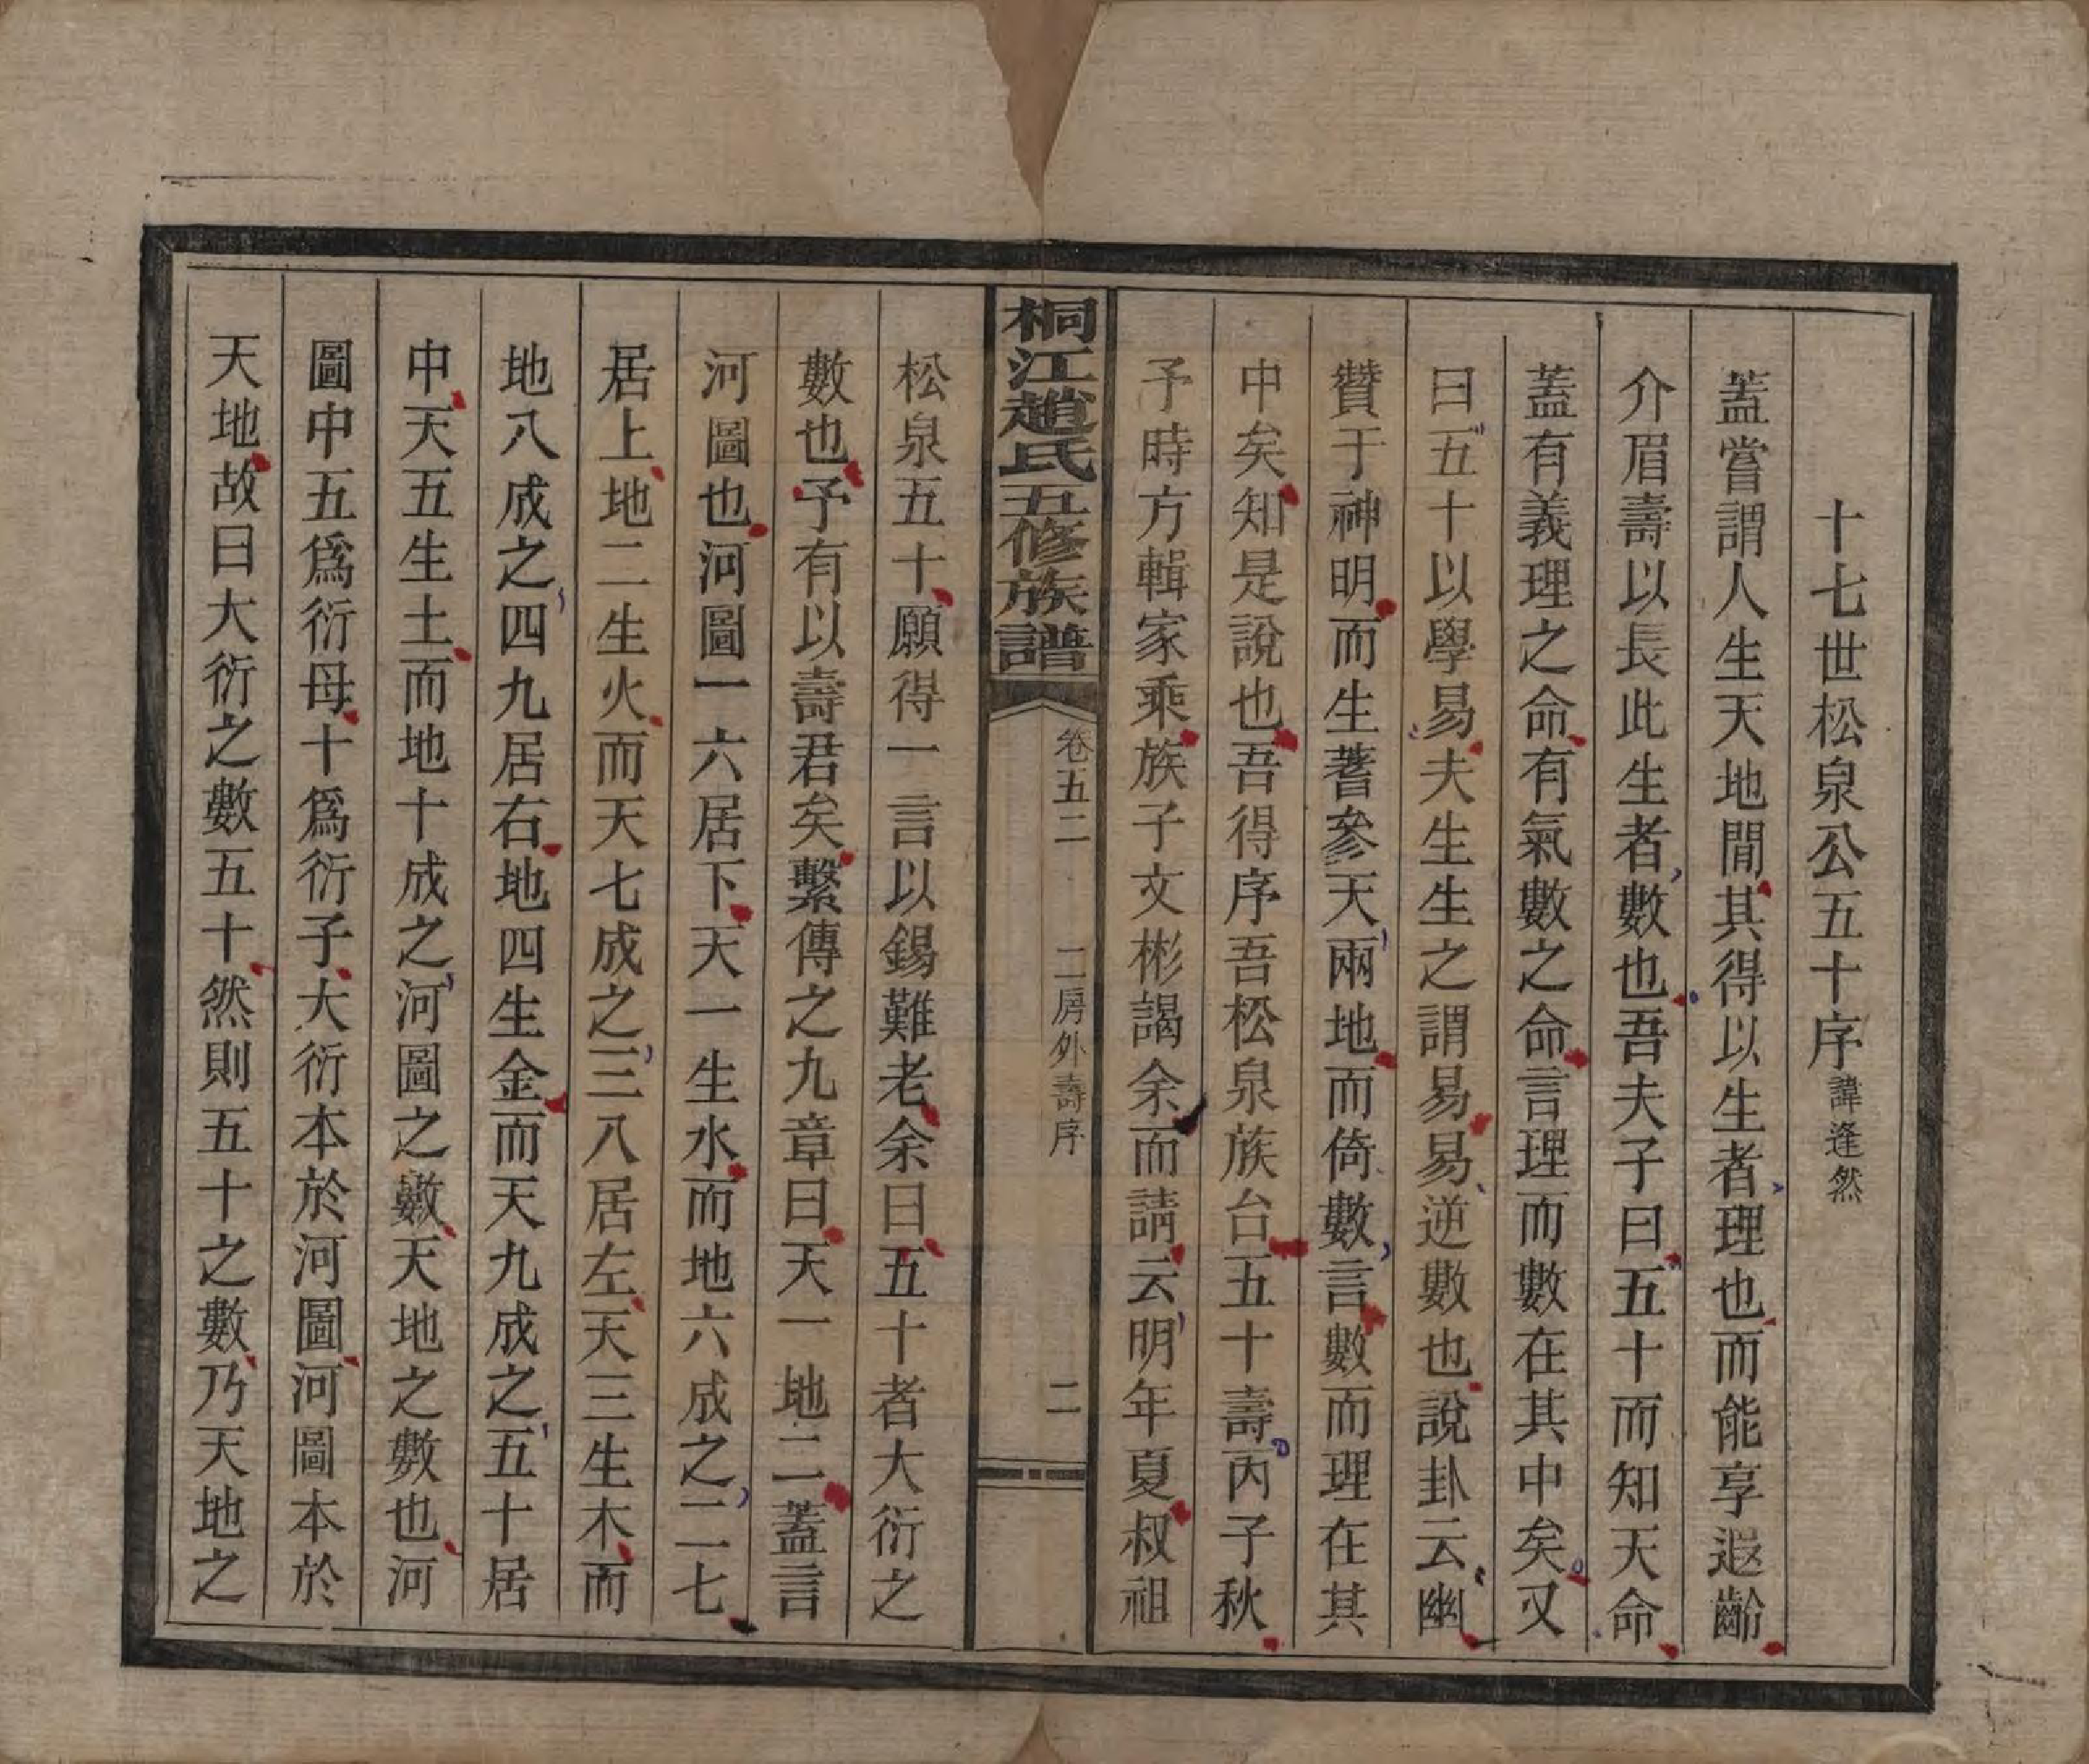 十七世松泉公五十序諱逢然
蓋嘗謂人生天地間其得以生者理也而能享遐齡
介眉壽以長此生者數也吾夫子曰五十而知天命
蓋有義理之命有氣數之命言理而數在其中矣又
曰五十以學易夫生生之謂易易逆數也說卦云幽
贊于神明而生蓍參天兩地而倚數言數而理在其
中矣知是說也吾得序吾松泉族台五十壽丙子秋
予時方輯家乘族子文彬謁余而請云明年夏叔祖
桐江趙氏五修族譜
卷五二 二房外壽序 二
松泉五十願得一言以錫難老余曰五十者大衍之
數也予有以壽君矣繫傳之九章曰天一地二蓋言
河圖也河圖一六居下天一生水而地六成之二七
居上地二生火而天七成之三八居左天三生木而
地八成之四九居右地四生金而天九成之五十居
中天五生土而地十成之河圖之數天地之數也河
圖中五爲衍母十爲衍子大衍本於河圖河圖本於
天地故曰大衍之數五十然則五十之數乃天地之